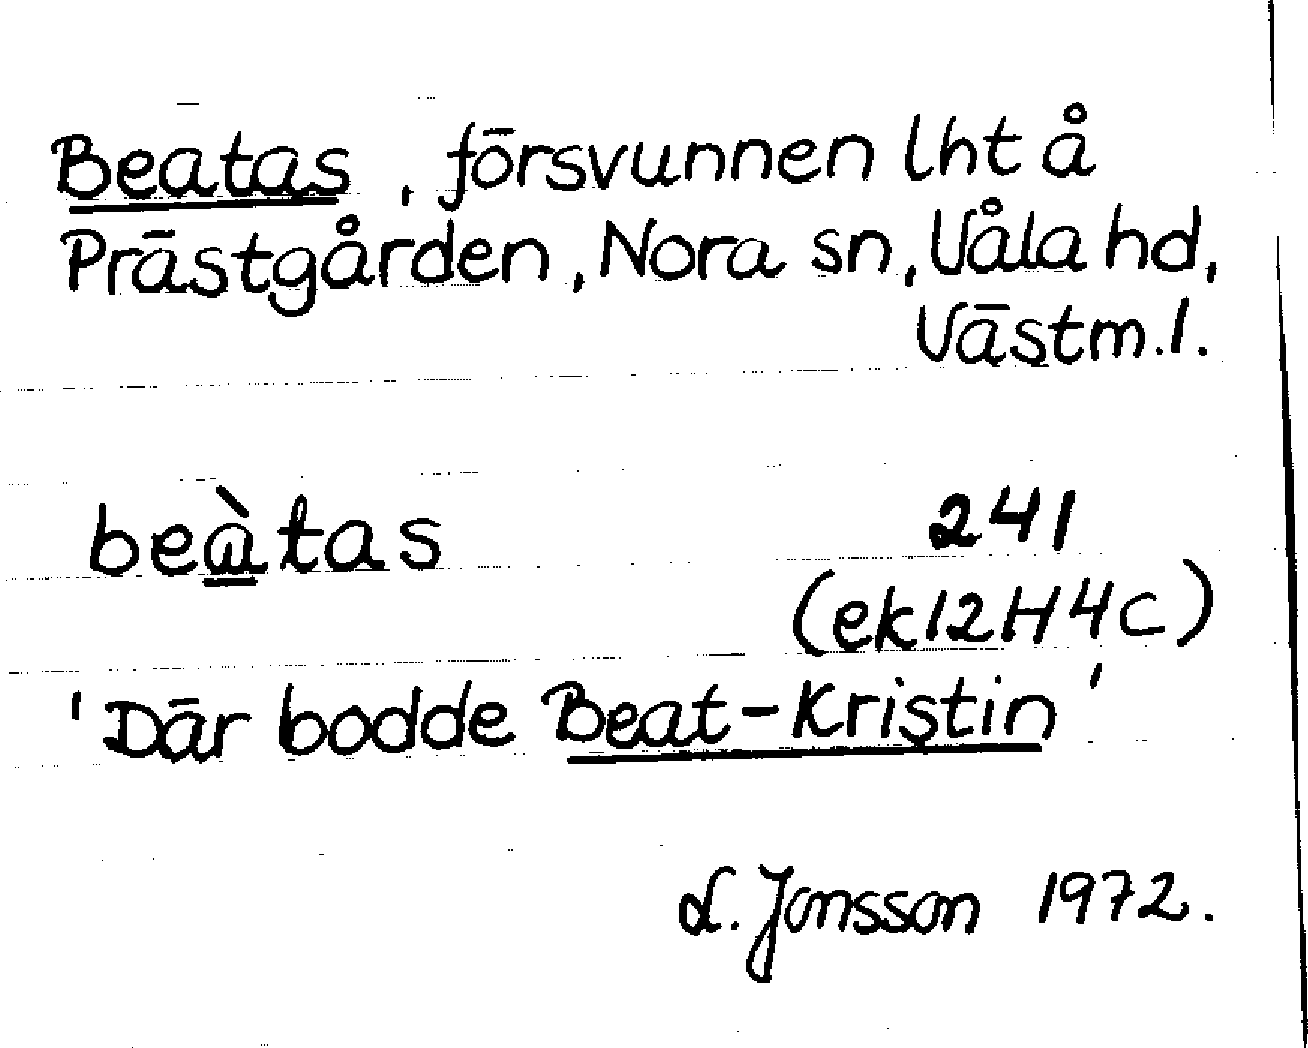 Beatas, försvunnen lht å
Prästgården, Nora sn, Våla hd,
Västm.l.
beàtas 241
(ek12H4c)
'Där bodde Beat-Kristin'
L. Jonsson 1972.